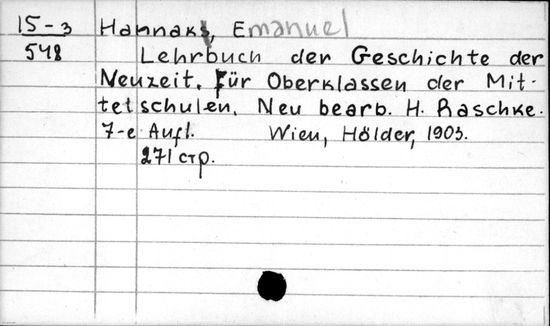 15-3 Hannak, Emanuel
548 Lehrbuch der Geschichte der
Neuzeit. Für Oberklassen der Mit-
telschulen. Neu bearb. H. Raschke.
7-e Aufl. Wien, Hölder, 1903.
271 стр.